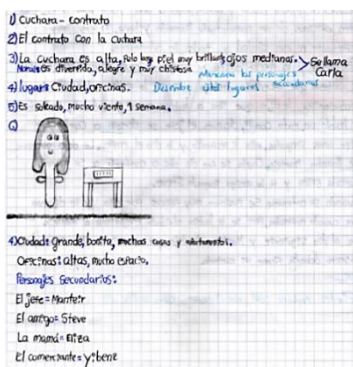 1) Cuchara - contrato
2) El contrato con la cuchara
3) La cuchara es alta, Pelo largo piel muy brillante, ojos medianos. > Se llama Carla
es divertida, alegre y muy chistosa Menciona los personajes secundarios
4) lugar: Ciudad, oficinas. Describe los lugares
5) Es soleado, mucho viento, 1 semana.
6)
4) Ciudad: Grande, bonita, muchas casas y
Oficinas: altas, mucho espacio.
Personajes Secundarios:
El jefe =
El amigo = Steve
La mamá = Eliza
El comerciante = yibenz